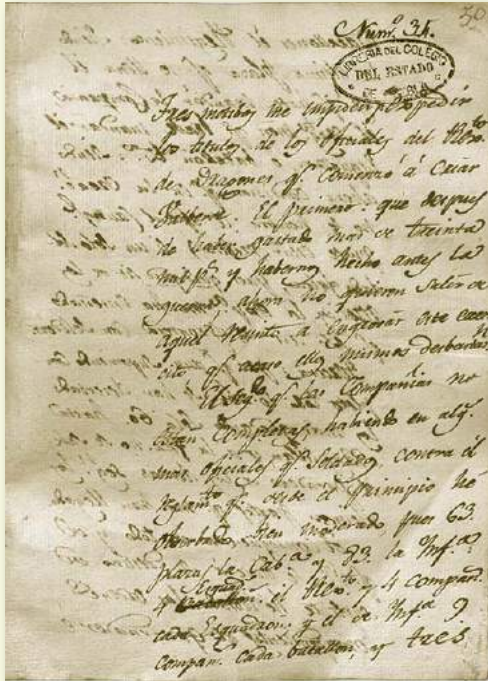 30
Num.o 34.
LIBRERIA DEL COLEGIO
DEL ESTADO
DE PUEBLA
Tres motivos me impiden expedir
los titulos de los oficiales del
de Dragones q.e comenzó á criar
El primero que despues
de haber gastado mas de treinta
mil p.s y habernos hecho antes la
guerra ahora no quieren salir de
aquel á engrosar este
cito q.e acaso ellos mismos
El seg.do q.e las compañias no
están completas, habiendo en alg.s
mas oficiales q.e soldados, contra el
reglam.to q.e desde el principio he
observado, bien moderado, pues 63
plazas la Cab.a y 83 la Inf.a
4 el y 4 compañ.
cada Esquadron, y el de Inf.a 9
compañ. cada batallon, y tres